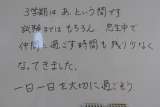 3学期はあ、という間です
試験まではもちろん 思生中で
仲間と過ごす時間も残り少なく
なってきました。
一日一日を大切に過ごそう